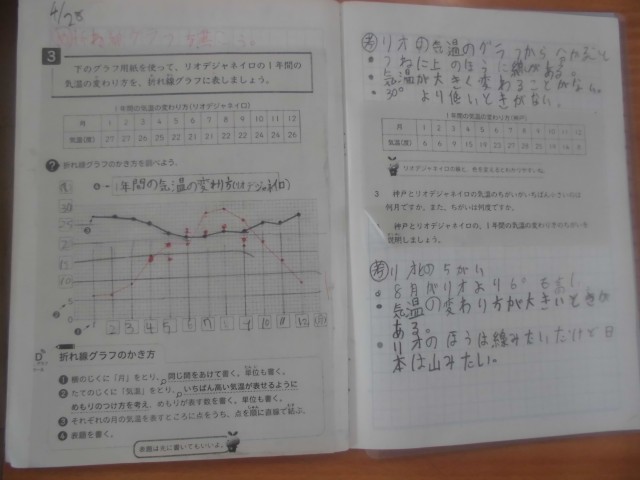 4/28
3
下のグラフ用紙を使って、リオデジャネイロの1年間の
気温の変わり方を、折れ線グラフに表しましょう。
1年間の気温の変わり方(リオデジャネイロ)
月 1 2 3 4 5 6 7 8 9 10 11 12
気温(度) 27 27 27 25 23 22 22 22 22 24 24 26
? 折れ線グラフのかき方を調べよう。
1年間の気温の変わり方(リオデジャネイロ)
30
25
20
15
10
5
1 2 3 4 5 6 7 8 9 10 11 12
折れ線グラフのかき方
1 横のじくに「月」をとり、同じ間をあけて書く。単位も書く。
2 たてのじくに「気温」をとり、いちばん高い気温が表せるように
めもりのつけ方を考え、めもりが表す数を書く。単位も書く。
3 それぞれの月の気温を表すところに点をうち、点を順に直線で結ぶ。
4 表題を書く。
表題は先に書いてもいいよ。
考 リオの気温のグラフから
つねに上のほうに線がある。
気温が大きく変わることがない。
30° より低いときがない。
1年間の気温の変わり方(神戸)
月 1 2 3 4 5 6 7 8 9 10 11 12
気温(度)
3 神戸とリオデジャネイロの気温のちがいがいちばん小さいのは
何月ですか。また、ちがいは何度ですか。
神戸とリオデジャネイロの、1年間の気温の変わり方のちがいを
説明しましょう。
考 リオとのちがい
8月がリオより6° も高い
気温の変わり方が大きいときが
ある。
リオのほうは線みたいだけど日
本は山みたい。